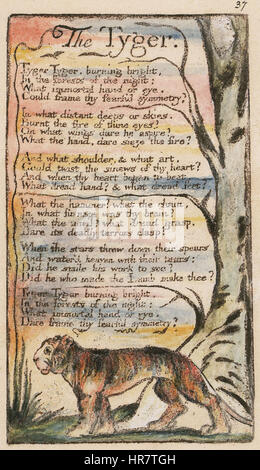 37
The Tyger.
Tyger Tyger, burning bright,
In the forests of the night;
What immortal hand or eye,
Could frame thy fearful symmetry?
In what distant deeps or skies,
Burnt the fire of thine eyes?
On what wings dare he aspire?
What the hand, dare sieze the fire?
And what shoulder, & what art,
Could twist the sinews of thy heart?
And when thy heart began to beat,
What dread hand? & what dread feet?
What the hammer? what the chain,
In what furnace was thy brain?
What the anvil? what dread grasp,
Dare its deadly terrors clasp?
When the stars threw down their spears
And water'd heaven with their tears:
Did he smile his work to see?
Did he who made the Lamb make thee?
Tyger Tyger burning bright,
In the forests of the night:
What immortal hand or eye,
Dare frame thy fearful symmetry?
alamy stock photo
HR7TGH
www.alamy.com